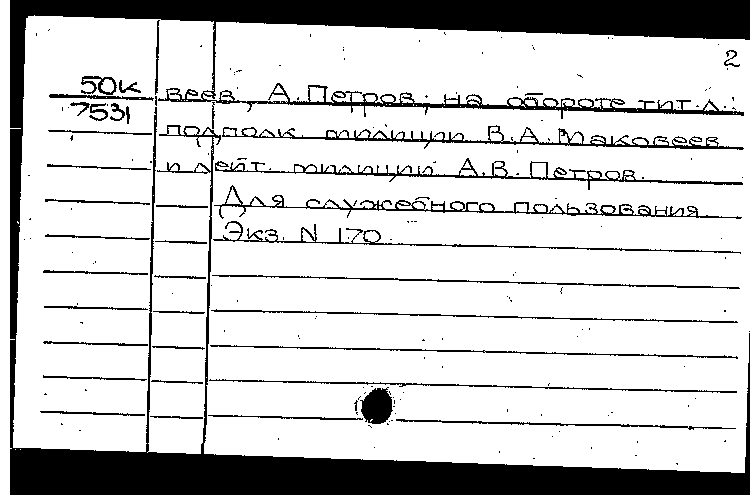 2
50К
7531
веев, А. Петров; на обороте тит. л.:
подполк. милиции В.А. Маковеев
и лейт. милиции А.В. Петров.
Для служебного пользования
Экз. N 170